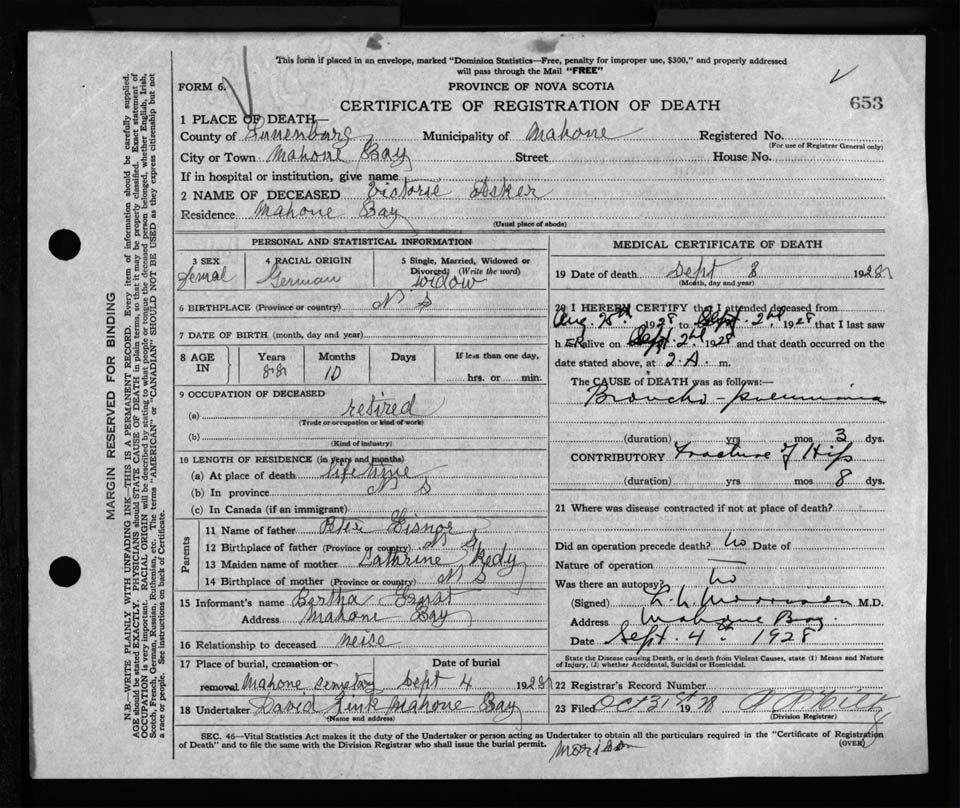 This form if placed in an envelope, marked "Dominion Statistics—Free, penalty for improper use, $300," and properly addressed
will pass through the Mail "FREE"
FORM 6. PROVINCE OF NOVA SCOTIA
CERTIFICATE OF REGISTRATION OF DEATH 653
1 PLACE OF DEATH—
County of Lunenburg Municipality of Mahone Registered No.
(For use of Registrar General only)
City or Town Mahone Bay Street House No.
If in hospital or institution, give name
2 NAME OF DECEASED Victorie
Residence Mahone Bay
(Usual place of abode)
PERSONAL AND STATISTICAL INFORMATION
3 SEX 4 RACIAL ORIGIN 5 Single, Married, Widowed or
Divorced (Write the word)
Femal German widow
6 BIRTHPLACE (Province or country) N S
7 DATE OF BIRTH (month, day and year)
8 AGE IN Years Months Days If less than one day,
88 10 hrs. or min.
9 OCCUPATION OF DECEASED
(a) retired
(Trade or occupation or kind of work)
(b)
(Kind of industry)
10 LENGTH OF RESIDENCE (in years and months)
(a) At place of death lifetime
(b) In province N S
(c) In Canada (if an immigrant)
Parents
11 Name of father Eisnor
12 Birthplace of father (Province or country) N S
13 Maiden name of mother Cathrine
14 Birthplace of mother (Province or country) N S
15 Informant's name Bertha Ernst
Address Mahone Bay
16 Relationship to deceased neice
17 Place of burial, cremation or Date of burial
removal Mahone cemetary Sept 4 1928
18 Undertaker David Mahone Bay
(Name and address)
MEDICAL CERTIFICATE OF DEATH
19 Date of death Sept 1928
(Month, day and year)
20 I HEREBY CERTIFY that I attended deceased from
Aug. 1928 to Sept. 2nd 1928 that I last saw
h ER alive on Sept. 2nd 1928 and that death occurred on the
date stated above, at 2 A. m.
The CAUSE of DEATH was as follows:—
Broncho-pneumonia
(duration) yrs mos 3 dys.
CONTRIBUTORY Fracture of Hip
(duration) yrs mos 8 dys.
21 Where was disease contracted if not at place of death?
Did an operation precede death? No Date of
Nature of operation
Was there an autopsy? No
(Signed) M.D.
Address Mahone Bay
Date Sept. 4th 1928
State the Disease causing Death, or in death from Violent Causes, state (1) Means and Nature
of Injury, (2) whether Accidental, Suicidal or Homicidal.
22 Registrar's Record Number
23 Filed Oct 31st 1928
SEC. 46—Vital Statistics Act makes it the duty of the Undertaker or person acting as Undertaker to obtain all the particulars required in the "Certificate of Registration
of Death" and to file the same with the Division Registrar who shall issue the burial permit. (OVER)
Morison
MARGIN RESERVED FOR BINDING
N.B.—WRITE PLAINLY WITH UNFADING INK—THIS IS A PERMANENT RECORD. Every item of information should be carefully supplied.
AGE should be stated EXACTLY. PHYSICIANS should STATE CAUSE OF DEATH in plain terms, so that it may be properly classified. Exact statement of
OCCUPATION is very important. RACIAL ORIGIN will be described by stating to what people or tongue the deceased person belonged, whether English, Irish,
Scotch, French, German, Russian, Ruthenian, etc. The terms "AMERICAN" or "CANADIAN" SHOULD NOT BE USED as they express citizenship but not
a race or people. See instructions on back of Certificate.